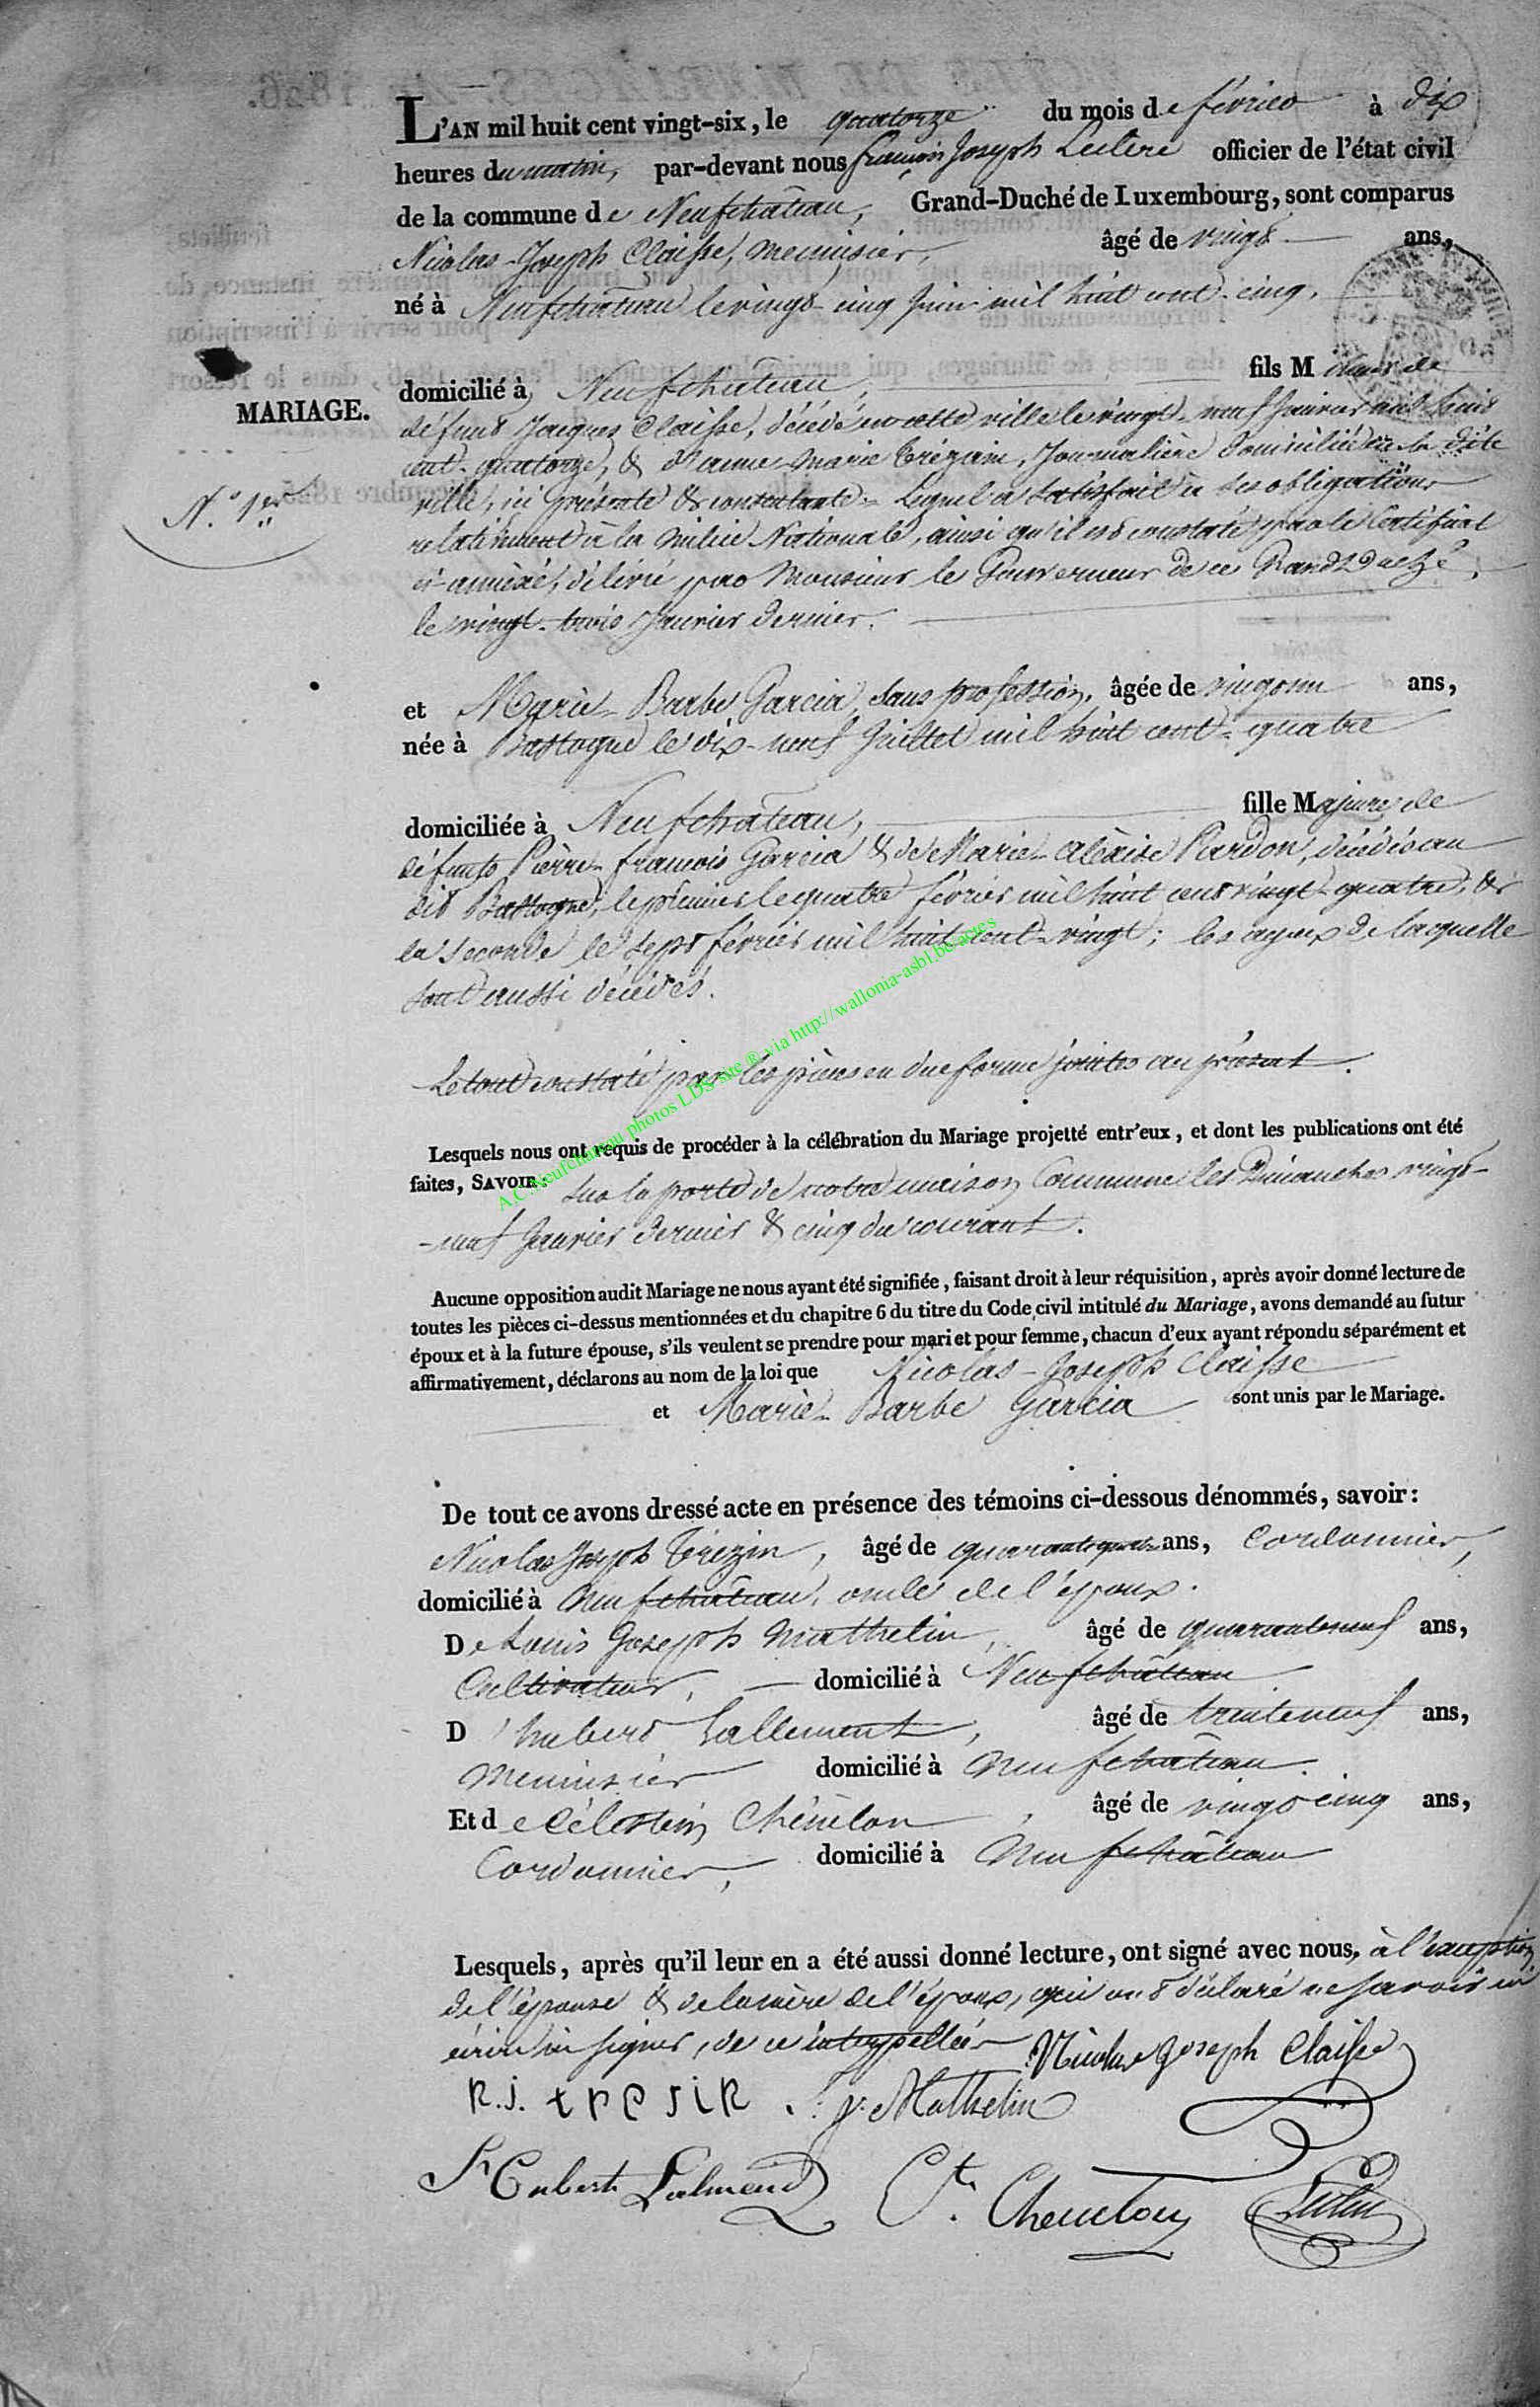 L'AN mil huit cent vingt-six, le quatorze du mois de février à dix
heures du matin, par-devant nous françois Joseph Leclere officier de l'état civil
de la commune de Neufchâteau, Grand-Duché de Luxembourg, sont comparus
Nicolas-Joseph Claisse, menuisier, âgé de vingt ans,
né à Neufchâteau le vingt-cinq Juin mil huit cent-cinq,
domicilié à Neufchateau, fils M ineur de
MARIAGE.
défunt Jacques Claisse, décédé en cette ville le vingt-neuf Janvier mil huit
cent-quatorze, & d'anne-marie Trézain, Journalière domiciliée en la dite
N.° 1er
ville, ici présente & consentante. Lequel a satisfait à ses obligations
relativement à la milice Nationale, ainsi qu'il est constaté par le Certificat
ci-annèxé, délivré par Monsieur le Gouverneur de ce Grand Duché,
le vingt-trois Janvier dernier.
et Marie-Barbe Garcia, sans profession, âgée de vingt un ans,
née à Bastogne le dix-neuf Juillet mil huit cent-quatre
domiciliée à Neufchâteau, fille Majeure de
défunts Pièrre-françois Garcia & de Marie-Alexise Pardon, décédés au
dit Bastogne, le prémier le quatre février mil huit cent vingt-quatre, &
la seconde le sept février mil huit cent-vingt; les ayeux de laquelle
sont aussi décédés.
Le tout constaté par les pièces en due forme jointes au présent.
Lesquels nous ont requis de procéder à la célébration du Mariage projetté entr'eux, et dont les publications ont été
faites, SAVOIR, sur la porte de notre maison Commune les Dimanches vingt-
-neuf Janvier dernier & cinq du courant.
A.C. Neufchateau photos LDS site ® via http://wallonia-asbl.be/actes
Aucune opposition audit Mariage ne nous ayant été signifiée, faisant droit à leur réquisition, après avoir donné lecture de
toutes les pièces ci-dessus mentionnées et du chapitre 6 du titre du Code civil intitulé du Mariage, avons demandé au futur
époux et à la future épouse, s'ils veulent se prendre pour mari et pour femme, chacun d'eux ayant répondu séparément et
affirmativement, déclarons au nom de la loi que Nicolas-Joseph Claisse
et Marie-Barbe Garcia sont unis par le Mariage.
De tout ce avons dressé acte en présence des témoins ci-dessous dénommés, savoir:
Nicolas Joseph Trézin, âgé de quarante quatre ans, Cordonnier,
domicilié à Neufchâteau, oncle de l'époux.
De Louis Joseph Mathelin, âgé de quarante neuf ans,
Cultivateur, domicilié à Neufchâteau
D'hubert Lallement, âgé de trente neuf ans,
Menuisier domicilié à Neufchâteau.
Et de Célestin Chénelon, âgé de vingt cinq ans,
Cordonnier, domicilié à Neufchâteau
Lesquels, après qu'il leur en a été aussi donné lecture, ont signé avec nous, à l'exception
de l'épouse & de la mère de l'époux, qui ont déclaré ne savoir ni
écrire ni signer, de ce interpellées Nicolas Joseph Claisse
n.j. tresin J. Mathelin
hubert Lalmend Ct. Chenelon Leclere